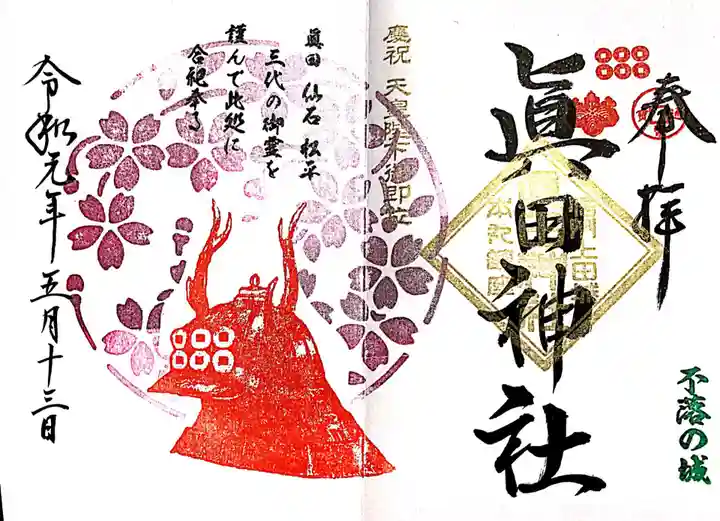 奉拝
眞田神社
不落の城
慶祝 天皇陛下御即位
眞田 仙石 松平
三代の御霊を
謹んで此処に
合祀奉る
令和元年五月十三日